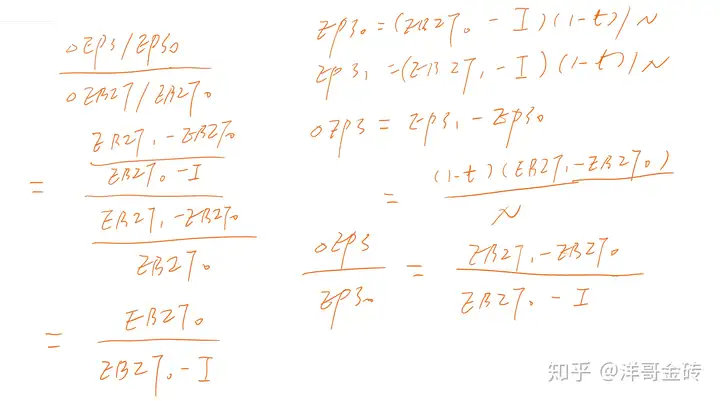 △EPS/EPS₀
△EBIT/EBIT₀
= (EBIT₁-EBIT₀)/(EBIT₀-I)
(EBIT₁-EBIT₀)/EBIT₀
= EBIT₀/(EBIT₀-I)
EPS₀=(EBIT₀-I)(1-t)/N
EPS₁=(EBIT₁-I)(1-t)/N
△EPS=EPS₁-EPS₀
= (1-t)(EBIT₁-EBIT₀)/N
△EPS/EPS₀ = (EBIT₁-EBIT₀)/(EBIT₀-I)
知乎 @洋哥金砖